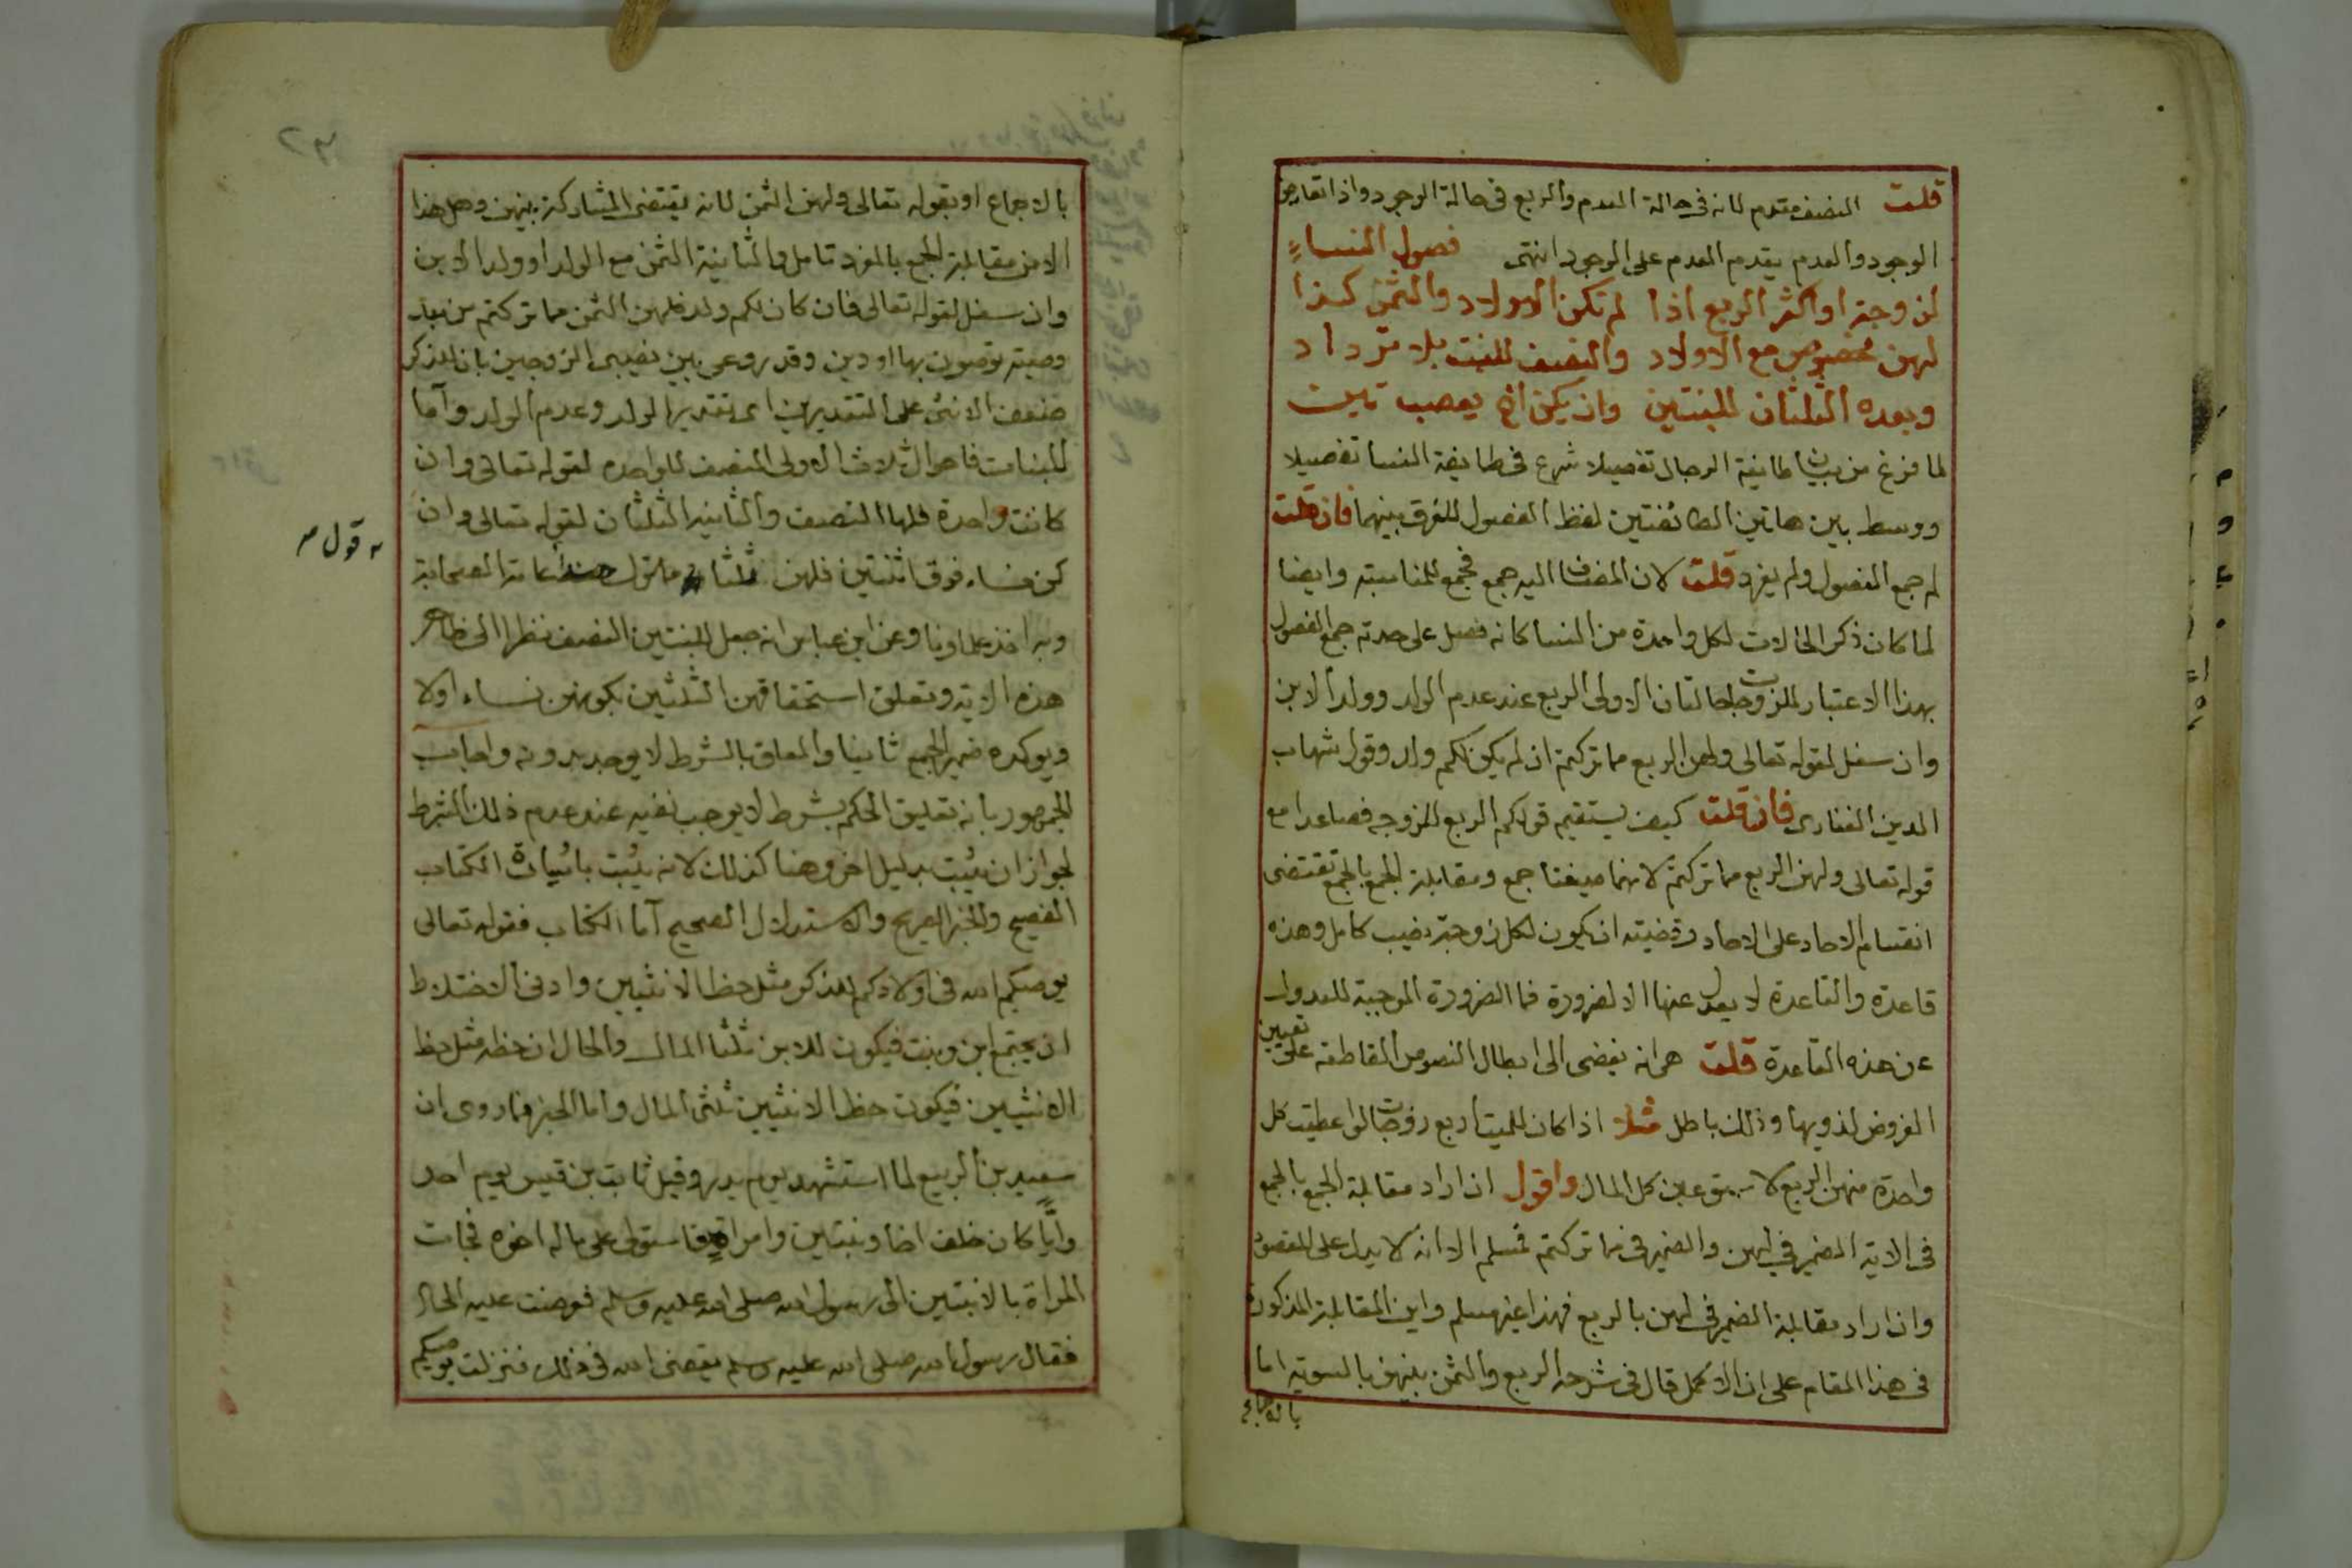 قلت النصف مقدم لانه فى حالة العدم والربع فى حالة الوجود واذا تعارض
الوجود والعدم يقدم العدم على الوجود انتهى فصول النساء
لزوجة او اكثر الربع اذا لم تكن الاولاد والثمن كذا
لهن مخصوص مع الاولاد والنصف للبنت بلا ترداد
وبعده الثلثان للبنتين وان يكن اخ يعصب تين
لما فرغ من بيان طايفة الرجال تفصيلا شرع فى طايفة النسا تفصيلا
ووسط بين هاتين الطائفتين لفظ الفصول للفرق بينهما فان قلت
لم جمع الفصول ولم يفرد قلت لان المضاف اليه جمع فجمع للمناسبة وايضا
لما كان ذكر الحالات لكل واحدة من النسا كانه فصل على حدته جمع الفصول
بهذا الاعتبار للزوجات حالتان الاولى الربع عند عدم الولد وولد الابن
وان سفل لقوله تعالى ولهن الربع مما تركتم ان لم يكن لكم ولد وقول شهاب
الدين الفنارى فان قلت كيف يستقيم قولكم الربع للزوجة فصاعدا مع
قوله تعالى ولهن الربع مما تركتم لانهما صيغتا جمع ومقابلة الجمع بالجمع تقتضى
انقسام الاحاد على الاحاد وقضيته ان يكون لكل زوجة نصيب كامل وهذه
قاعدة والقاعدة لا يعدل عنها الا لضرورة فما الضرورة الموجبة للعدول
عن هذه القاعدة قلت هى انه يفضى الى ابطال النصوص القاطعة على تعيين
الفروض لذويها وذلك باطل مثلا اذا كان للميت اربع زوجات لو اعطيت كل
واحدة منهن الربع لاستوعبن كل المال واقول ان اراد مقابلة الجمع بالجمع
فى الاية الضمير فى لهن والضمير فى مما تركتم فمسلم الا انه لا يدل على المقصود
وان اراد مقابلة الضمير فى لهن بالربع فهذا غير مسلم واين المقابلة المذكورة
فى هذا المقام على ان الاكمل قال فى شرحه الربع والثمن بينهن بالسوية اما
بالاجماع
بالاجماع او بقوله تعالى ولهن الثمن لانه يقتضى المشاركة بينهن وهل هذا
الا من مقابلة الجمع بالمفرد تامل والثانية الثمن مع الولد او ولد الابن
وان سفل لقوله تعالى فان كان لكم ولد فلهن الثمن مما تركتم من بعد
وصية توصون بها او دين وقد روعى بين نصيبى الزوجين بان للذكر
ضعف الانثى على التقديرين اى تقدير الولد وعدم الولد وآما
للبنات فاحوال ثلاث الاولى النصف للواحدة لقوله تعالى وان
كانت واحدة فلها النصف والثانية الثلثان لقوله تعالى وان
كن نساء فوق اثنتين فلهن ثلثا ما ترك عامة الصحابة
قول
وبه اخذ علماؤنا وعن ابن عباس انه جعل للبنتين النصف نظرا الى ظاهر
هذه الاية وتعلق استحقاقهن الثلثين بكونهن نساء اولا
ويوكده ضمير الجمع ثانيا والمعلق بالشرط لا يوجد بدونه واجاب
الجمهور بانه تعليق الحكم بشرط لا يوجب نفيه عند عدم ذلك الشرط
لجواز ان يثبت بدليل اخر وهنا كذلك لانه يثبت باشارة الكتاب
الفصيح والخبر الصريح والاستدلال الصحيح آما الكتاب فقوله تعالى
يوصيكم الله فى اولادكم للذكر مثل حظ الانثيين وادنى الاختلاط
ان يجتمع ابن وبنت فيكون للابن ثلثا المال والحال ان حظه مثل حظ
الانثيين فيكون حظ الانثيين ثلثى المال واما الخبر فما روى ان
سعيد بن الربيع لما استشهد يوم بدر وقيل ثابت بن قيس يوم احد
وايًّا كان خلف اخا وبنتين وامراة فاستولى على ماله اخوه فجات
المراة بالابنتين الى رسول الله صلى الله عليه وسلم فعرضت عليه الحال
فقال رسول الله صلى الله عليه وسلم يقضى الله فى ذلك فنزلت يوصيكم